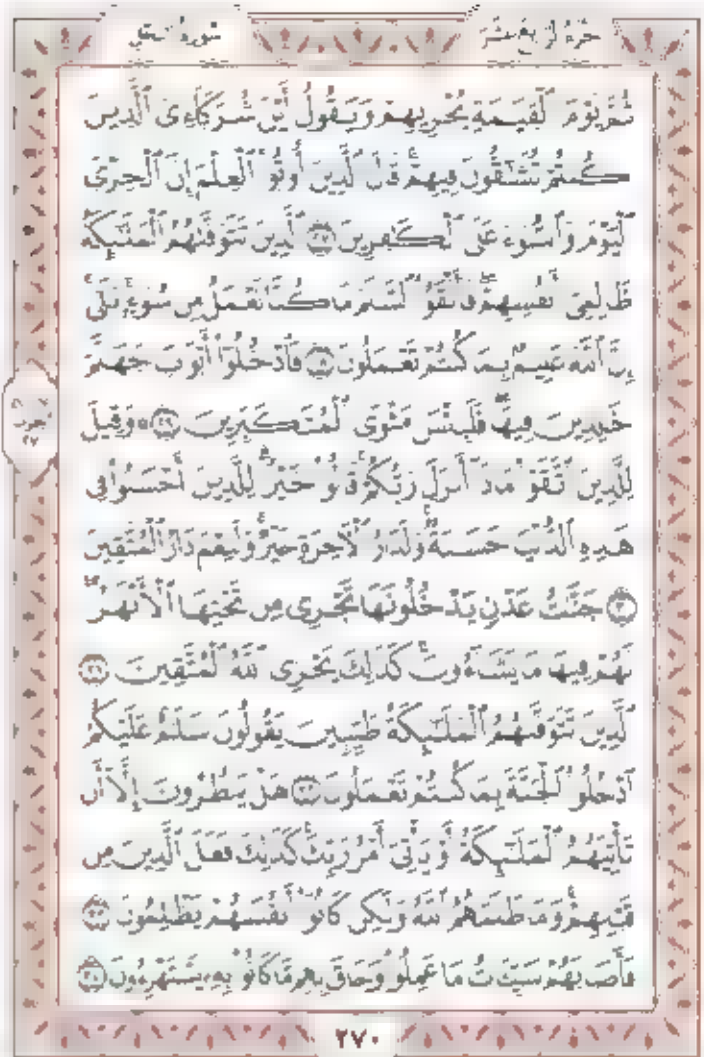 سورة النحل
الجزء الرابع عشر
ثُمَّ يَوْمَ ٱلْقِيَـٰمَةِ يُخْزِيهِمْ وَيَقُولُ أَيْنَ شُرَكَآءِىَ ٱلَّذِينَ
كُنتُمْ تُشَـٰٓقُّونَ فِيهِمْ ۚ قَالَ ٱلَّذِينَ أُوتُوا۟ ٱلْعِلْمَ إِنَّ ٱلْخِزْىَ
ٱلْيَوْمَ وَٱلسُّوٓءَ عَلَى ٱلْكَـٰفِرِينَ ٢٧ ٱلَّذِينَ تَتَوَفَّىٰهُمُ ٱلْمَلَـٰٓئِكَةُ
ظَالِمِىٓ أَنفُسِهِمْ ۖ فَأَلْقَوُا۟ ٱلسَّلَمَ مَا كُنَّا نَعْمَلُ مِن سُوٓءٍۭ ۚ بَلَىٰٓ
إِنَّ ٱللَّهَ عَلِيمٌۢ بِمَا كُنتُمْ تَعْمَلُونَ ٢٨ فَٱدْخُلُوٓا۟ أَبْوَٰبَ جَهَنَّمَ
خَـٰلِدِينَ فِيهَا ۖ فَلَبِئْسَ مَثْوَى ٱلْمُتَكَبِّرِينَ ٢٩ ۞ وَقِيلَ
لِلَّذِينَ ٱتَّقَوْا۟ مَاذَآ أَنزَلَ رَبُّكُمْ ۚ قَالُوا۟ خَيْرًا ۗ لِّلَّذِينَ أَحْسَنُوا۟ فِى
هَـٰذِهِ ٱلدُّنْيَا حَسَنَةٌ ۚ وَلَدَارُ ٱلْـَٔاخِرَةِ خَيْرٌ ۚ وَلَنِعْمَ دَارُ ٱلْمُتَّقِينَ
٣٠ جَنَّـٰتُ عَدْنٍ يَدْخُلُونَهَا تَجْرِى مِن تَحْتِهَا ٱلْأَنْهَـٰرُ ۖ
لَهُمْ فِيهَا مَا يَشَآءُونَ ۚ كَذَٰلِكَ يَجْزِى ٱللَّهُ ٱلْمُتَّقِينَ ٣١
ٱلَّذِينَ تَتَوَفَّىٰهُمُ ٱلْمَلَـٰٓئِكَةُ طَيِّبِينَ ۙ يَقُولُونَ سَلَـٰمٌ عَلَيْكُمُ
ٱدْخُلُوا۟ ٱلْجَنَّةَ بِمَا كُنتُمْ تَعْمَلُونَ ٣٢ هَلْ يَنظُرُونَ إِلَّآ أَن
تَأْتِيَهُمُ ٱلْمَلَـٰٓئِكَةُ أَوْ يَأْتِىَ أَمْرُ رَبِّكَ ۚ كَذَٰلِكَ فَعَلَ ٱلَّذِينَ مِن
قَبْلِهِمْ ۚ وَمَا ظَلَمَهُمُ ٱللَّهُ وَلَـٰكِن كَانُوٓا۟ أَنفُسَهُمْ يَظْلِمُونَ ٣٣
فَأَصَابَهُمْ سَيِّـَٔاتُ مَا عَمِلُوا۟ وَحَاقَ بِهِم مَّا كَانُوا۟ بِهِۦ يَسْتَهْزِءُونَ ٣٤
٢٧٠